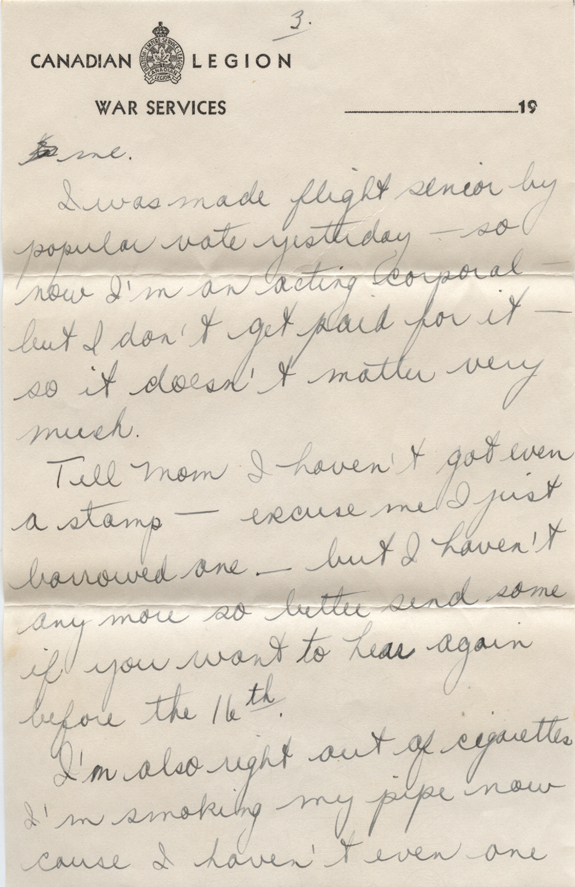 3.
CANADIAN LEGION
WAR SERVICES
19
me.
I was made flight senior by
popular vote yesterday — so
now I'm an acting corporal —
but I don't get paid for it —
so it doesn't matter very
much.
Tell Mom I haven't got even
a stamp — excuse me I just
borrowed one — but I haven't
any more so better send some
if you want to hear again
before the 16th.
I'm also right out of cigarettes
I'm smoking my pipe now
cause I haven't even one